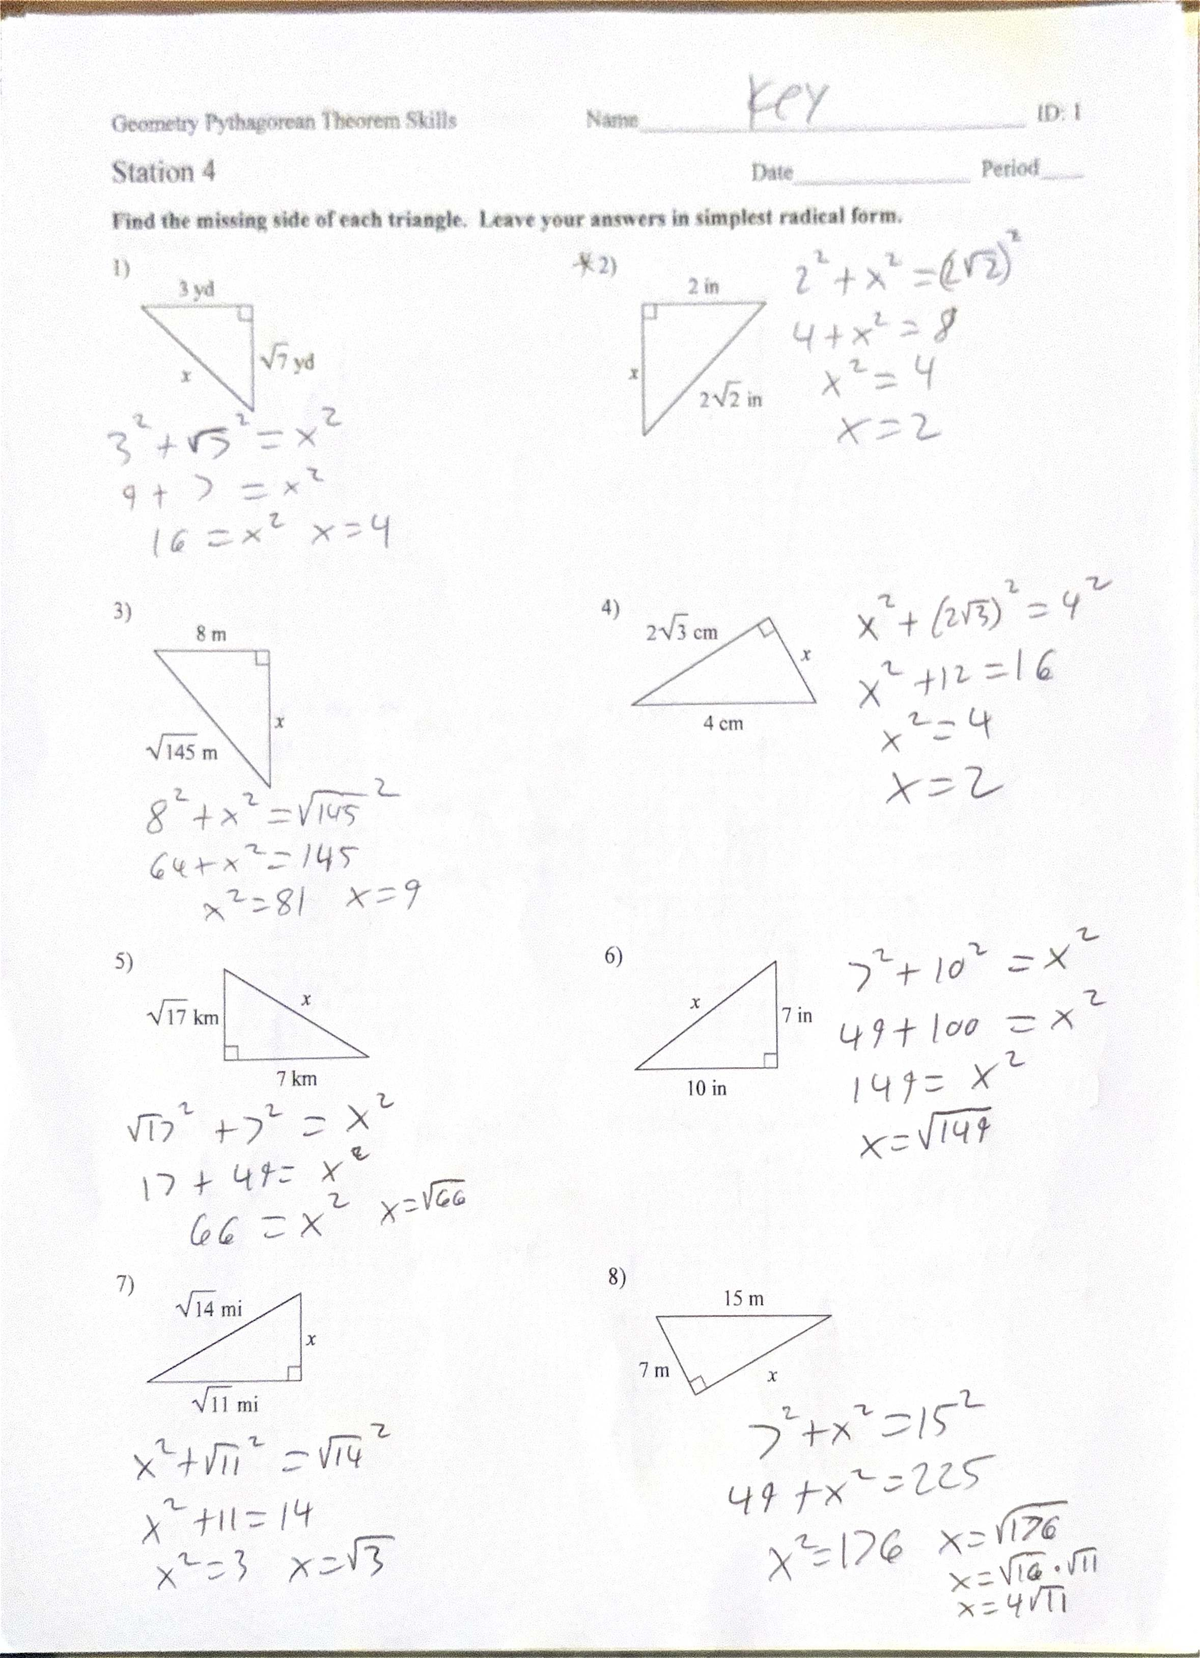 Geometry Pythagorean Theorem Skills
Name Key ID: 1
Station 4
Date Period
Find the missing side of each triangle. Leave your answers in simplest radical form.
1)
3 yd
√7 yd
x
3² + √7² = x²
9 + 7 = x²
16 = x² x = 4
*2)
2 in
x
2√2 in
2² + x² = (2√2)²
4 + x² = 8
x² = 4
x = 2
3)
8 m
x
√145 m
8² + x² = √145²
64 + x² = 145
x² = 81 x = 9
4)
2√3 cm
x
4 cm
x² + (2√3)² = 4²
x² + 12 = 16
x² = 4
x = 2
5)
√17 km
x
7 km
√17² + 7² = x²
17 + 49 = x²
66 = x² x = √66
6)
x
7 in
10 in
7² + 10² = x²
49 + 100 = x²
149 = x²
x = √149
7)
√14 mi
x
√11 mi
x² + √11² = √14²
x² + 11 = 14
x² = 3 x = √3
8)
15 m
7 m
x
7² + x² = 15²
49 + x² = 225
x² = 176 x = √176
x = √16 · √11
x = 4√11